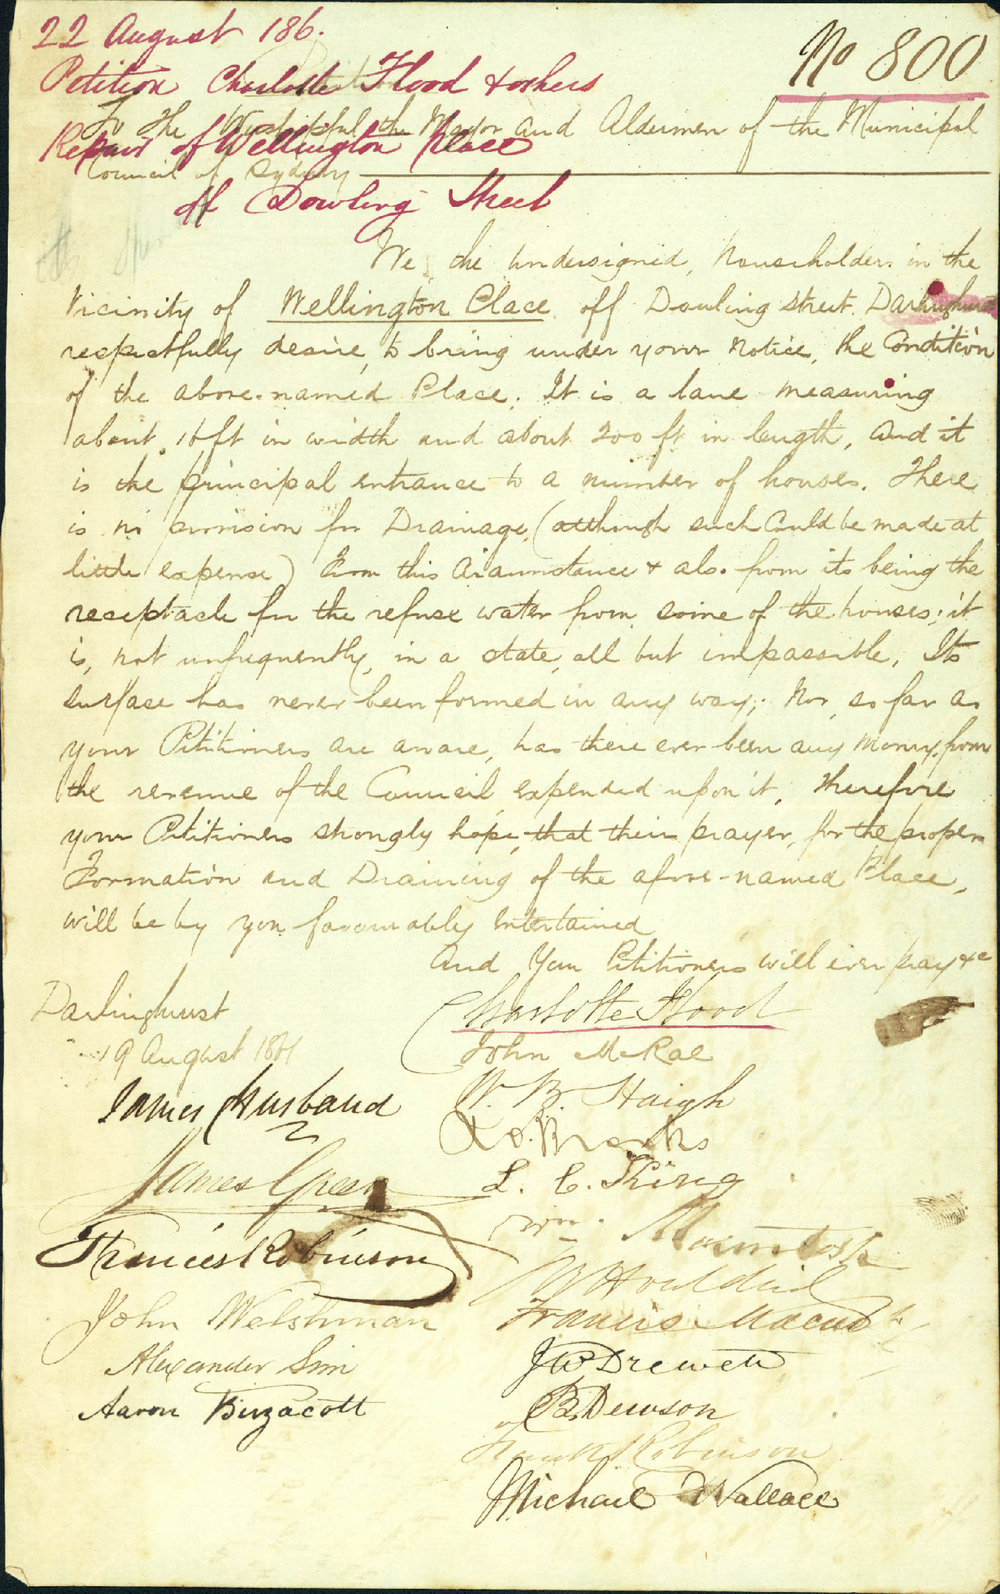 22 August 186.
No 800
Petition Charlotte Flood & others
To the Worshipful the Mayor and Aldermen of the Municipal
Repair of Wellington place
Council of Sydney
off Dowling Street
We, the undersigned, householders in the
Vicinity of Wellington Place off Dowling street Darlinghurst
respectfully desire, to bring under your notice, the Condition
of the above-named Place. It is a lane measuring
about 16 ft in width and about 200 ft in length, and it
is the principal entrance to a number of houses. There
is no provision for Drainage, (although such could be made at
little expense) From this circumstance & also from its being the
receptacle for the refuse water from some of the houses; it
is, not unfrequently, in a state, all but impassible. Its
surface has never been formed in any way; Nor, so far as
your Petitioners are aware, has there ever been any money, from
the revenue of the Council, expended upon it. Therefore
your Petitioners strongly hope, that their prayer, for the proper
Formation and Draining of the afore-named Place,
will be by you favourably entertained
And Your Petitioners will ever pray &c
Darlinghurst
Charlotte Flood
19 August 1861
John McRae
James Husband
W. B. Haigh
Brooks
James Green
L. C. King
Wm. Macintosh
Francis Robinson
W Houldin
John Welshman
Francis
Alexander Sim
J W Drewett
Aaron Buzacott
B. Dewson
Frank Robinson
Michael Wallace